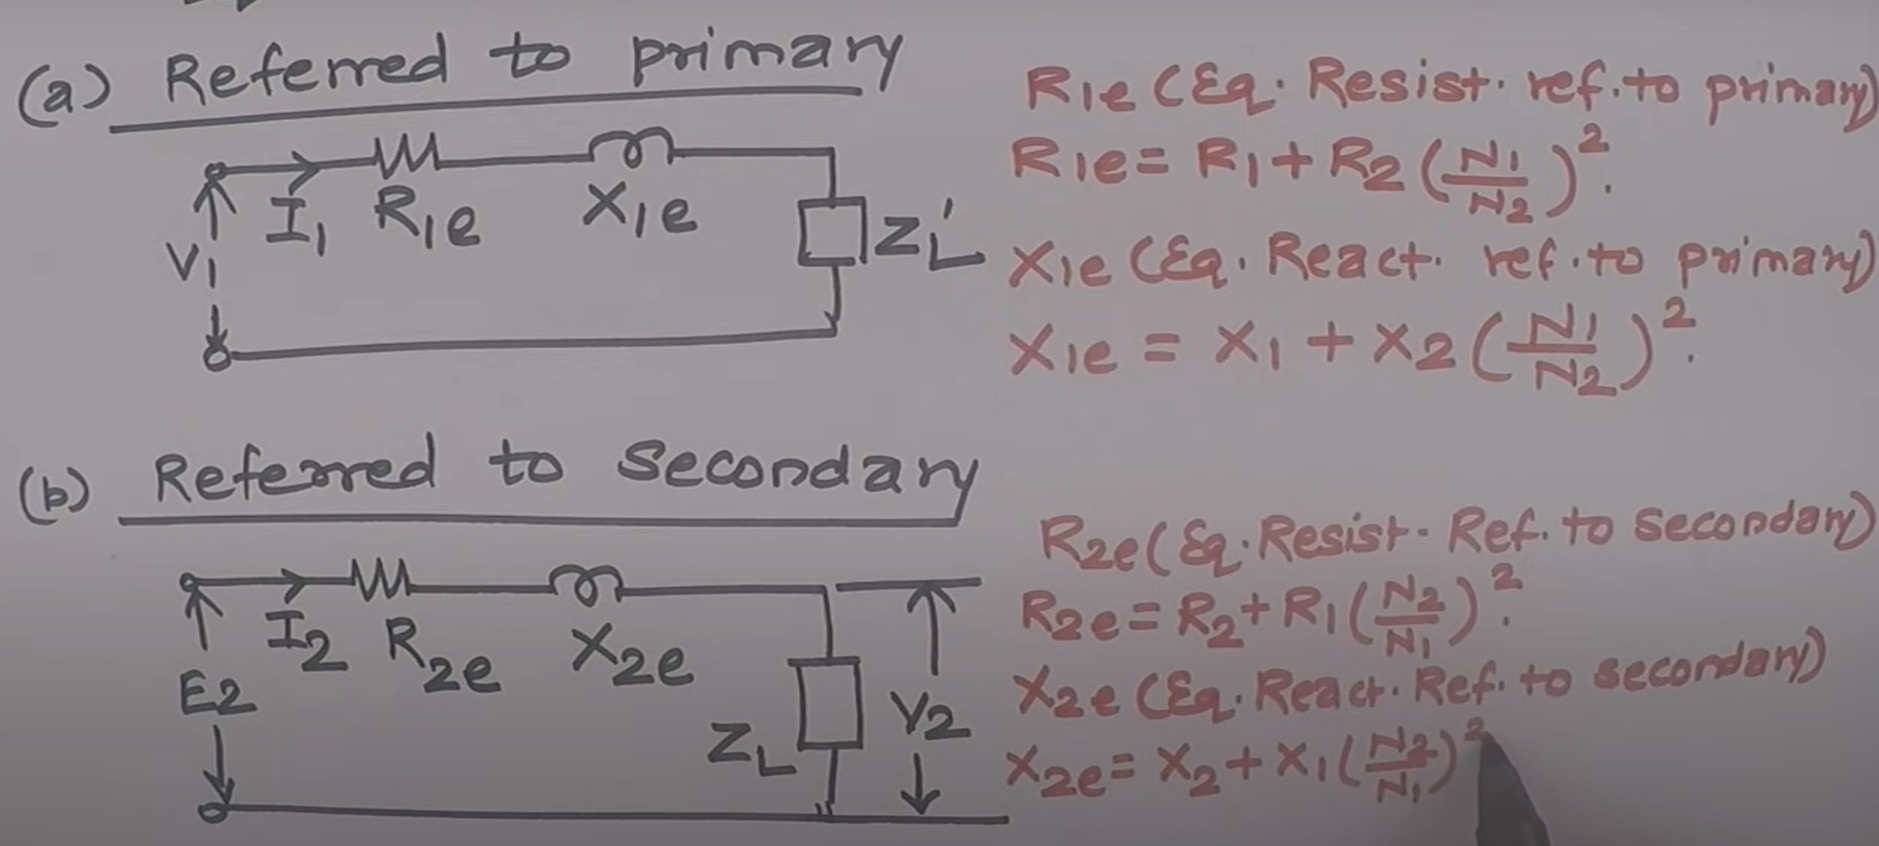 (a) Referred to primary
I₁ R₁e X₁e
V₁
Z'L
R₁e (Eq. Resist. ref. to primary)
R₁e = R₁ + R₂ (N₁/N₂)².
X₁e (Eq. React. ref. to primary)
X₁e = X₁ + X₂ (N₁/N₂)².
(b) Referred to Secondary
I₂ R₂e X₂e
E₂
ZL
V₂
R₂e (Eq. Resist. Ref. to secondary)
R₂e = R₂ + R₁ (N₂/N₁)².
X₂e (Eq. React. Ref. to secondary)
X₂e = X₂ + X₁ (N₂/N₁)²